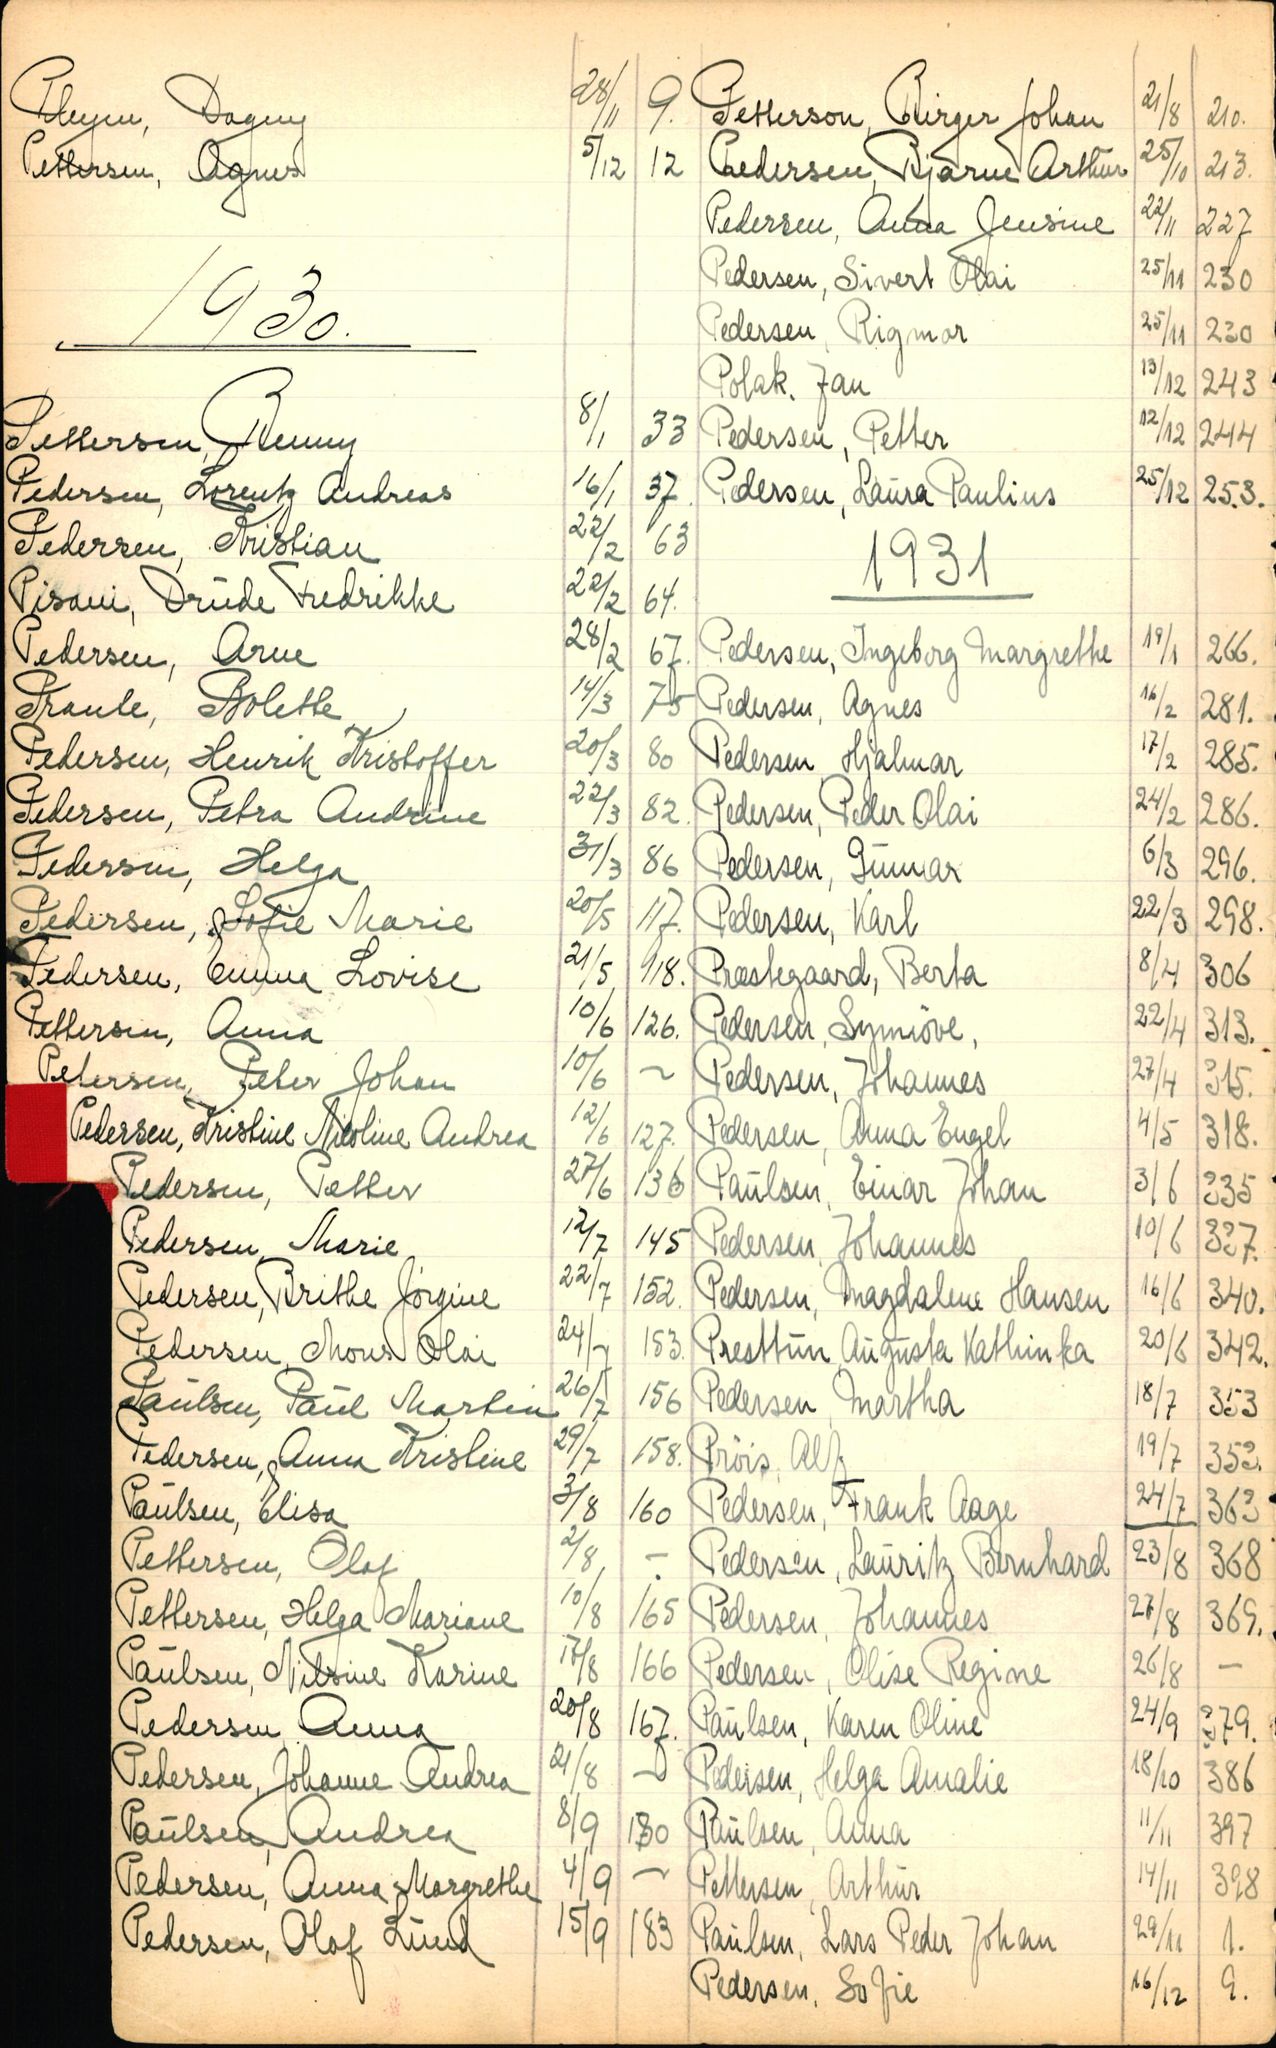 Pleym, Dagny 28/11 9.
Pettersen, Agnes 5/12 12
1930.
Pettersen, Benny 8/1 33
Pedersen, Lorentz Andreas 16/1 37.
Pedersen, Kristian 22/2 63
Pisani, Drude Fredrikke 22/2 64.
Pedersen, Arne 28/2 67.
Prante, Bolette 14/3 75
Pedersen, Henrik Kristoffer 20/3 80
Pedersen, Petra Andrine 22/3 82.
Pedersen, Helga 31/3 86
Pedersen, Sofie Marie 20/5 117.
Pedersen, Emma Lovise 21/5 118.
Pettersen, Anna 10/6 126.
Petersen, Peter Johan 10/6 ~
Pedersen, Kristine Nicoline Andrea 12/6 127.
Pedersen, Petter 27/6 136
Pedersen, Marie 12/7 145
Pedersen, Brithe Jörgine 22/7 152.
Pedersen, Mons Olai 24/7 153.
Paulsen, Paul Martin 26/7 156
Pedersen, Anna Kristine 29/7 158.
Paulsen, Elisa 3/8 160
Pettersen, Olaf 2/8 -
Pettersen, Helga Mariane 10/8 165
Paulsen, Nilsine Karine 17/8 166
Pedersen, Anna 20/8 167.
Pedersen, Johanne Andrea 21/8 ~
Paulsen, Andrea 8/9 180
Pedersen, Anna Margrethe 4/9 ~
Pedersen, Olaf Lund 15/9 183
Petterson, Birger Johan 21/8 210.
Pedersen, Bjarne Arthur 25/10 213.
Pedersen, Anna Jensine 22/11 227
Pedersen, Sivert Olai 25/11 230
Pedersen, Rigmor 25/11 230
Polak. Jan 13/12 243
Pedersen, Petter 12/12 244
Pedersen, Laura Paulius 25/12 253.
1931
Pedersen, Ingeborg Margrethe 19/1 266.
Pedersen, Agnes 16/2 281.
Pedersen, Hjalmar 17/2 285.
Pedersen, Peder Olai 24/2 286.
Pedersen, Gunnar 6/3 296.
Pedersen, Karl 22/3 298.
Præstegaard, Berta 8/4 306
Pedersen, Synnöve, 22/4 313.
Pedersen, Johannes 27/4 315.
Pedersen, Anna Engel 4/5 318.
Paulsen, Einar Johan 3/6 335
Pedersen, Johannes 10/6 337.
Pedersen, Magdalene Hansen 16/6 340.
Presttun, Augusta Kathinka 20/6 342.
Pedersen, Martha 18/7 353
Pröis, Alf 19/7 353.
Pedersen, Frank Aage 24/7 363
Pedersen, Lauritz Bernhard 23/8 368
Pedersen, Johannes 27/8 369.
Pedersen, Olise Regine 26/8 -
Paulsen, Karen Oline 24/9 379.
Pedersen, Helga Amalie 18/10 386
Paulsen, Anna 11/11 397
Pettersen, Arthur 14/11 398
Paulsen, Lars Peder Johan 29/11 1.
Pedersen, Sofie 16/12 9.